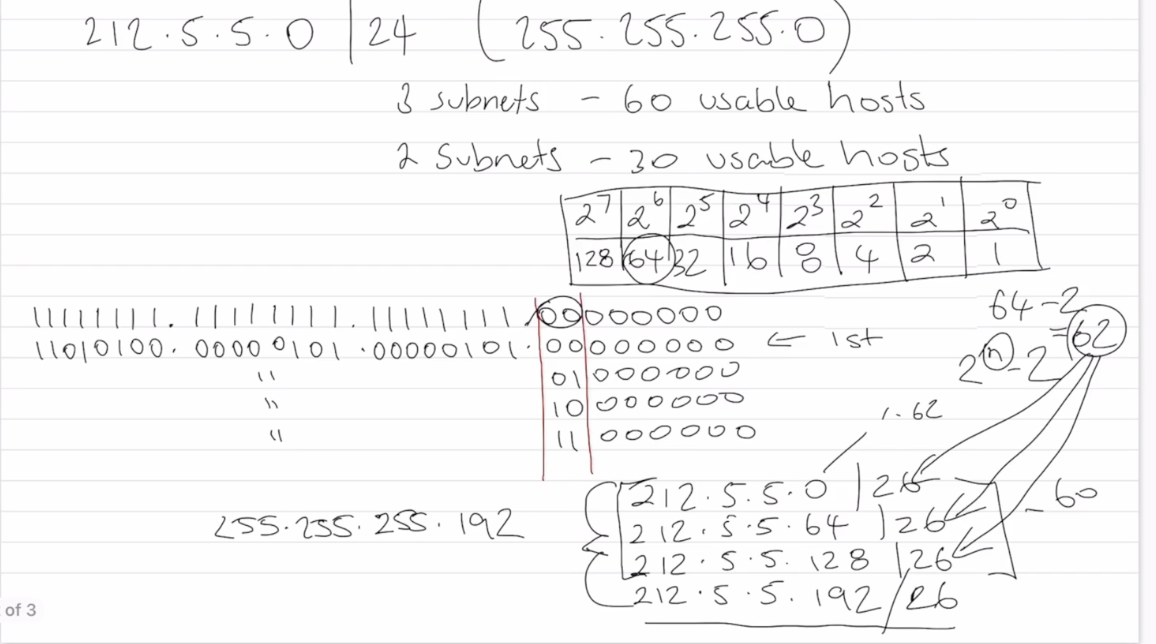 212.5.5.0 | 24 (255.255.255.0)
3 subnets - 60 usable hosts
2 Subnets - 30 usable hosts
2^7 2^6 2^5 2^4 2^3 2^2 2^1 2^0
128 64 32 16 8 4 2 1
11111111.11111111.11111111.00000000
64-2
11010100.00000101.00000101.00000000 ← 1st
=62
2^n-2
" 01000000
" 10000000
" 11000000
1-62
212.5.5.0 |26
- 60
255.255.255.192
212.5.5.64 |26
212.5.5.128 |26
212.5.5.192/26
of 3